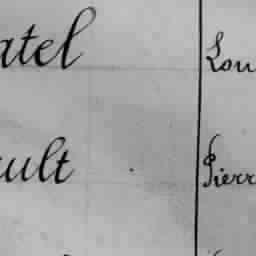 atel Lou
ault Pierr